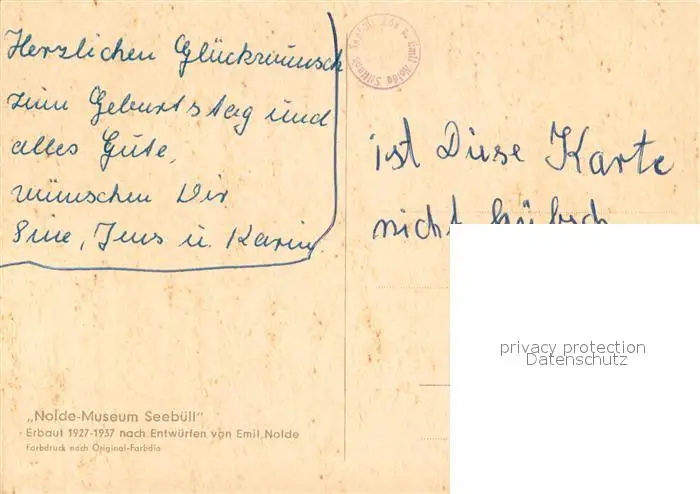 Herzlichen Glückwunsch
zum Geburtstag und
alles Gute,
wünschen Dir
Jens u. Karin
ist Diese Karte
nicht hübsch
privacy protection
Datenschutz
„Nolde-Museum Seebüll"
Erbaut 1927-1937 nach Entwürfen von Emil Nolde
Farbdruck nach Original-Farbdia